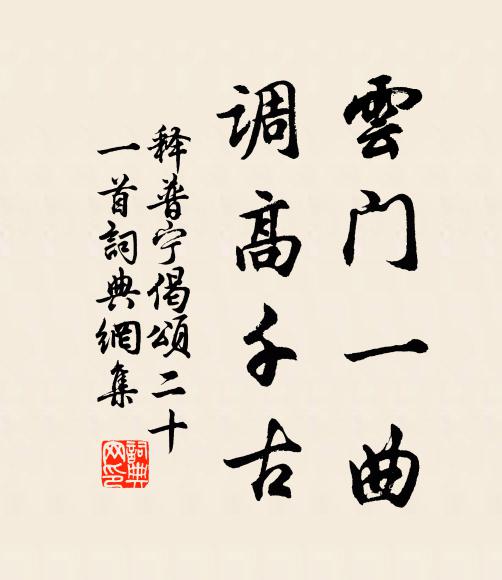 雲门一曲
调高千古
释普宁偈颂二十
一首詞典網集
詞典
网印